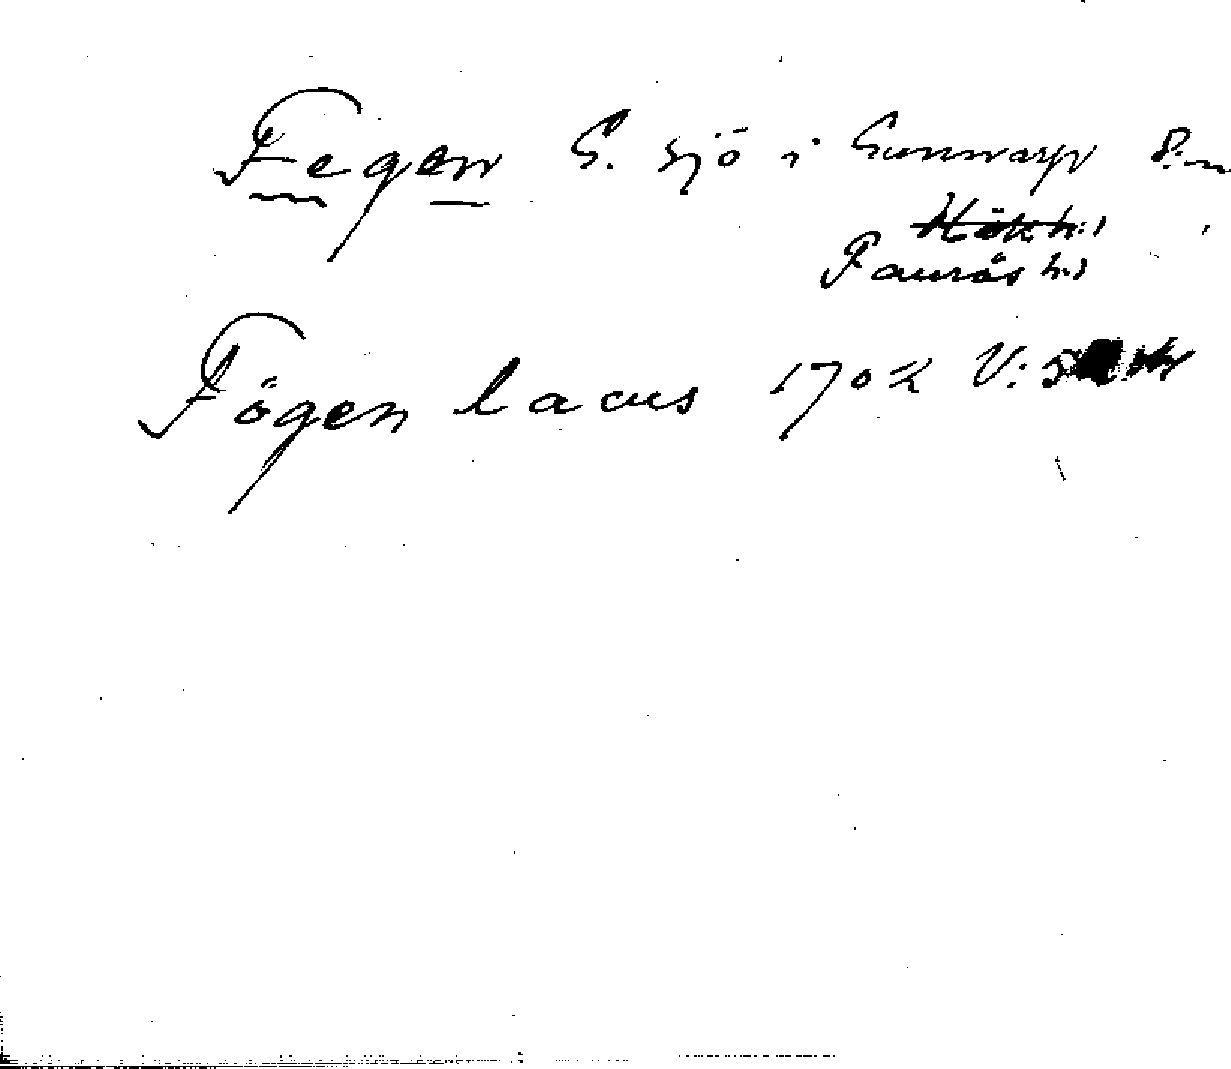 Fegen S. sjö i Gunnarp s:n
Hök h:d
Faurås h:d
Fögen lacus 1702 V: